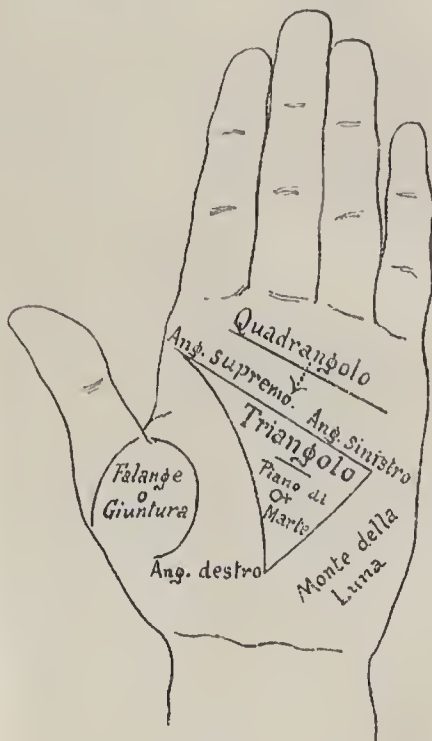 Quadrangolo
Ang. supremo.
Ang. sinistro
Triangolo
Piano di
Marte
Falange
o
Giuntura
Ang. destro
Monte della
Luna